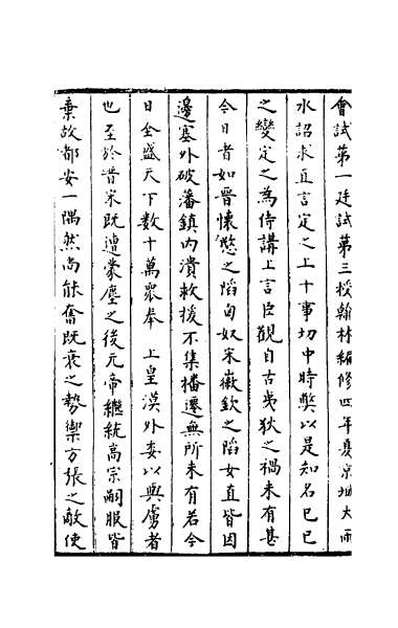 會試第一廷試第三授翰林編修四年夏京城大雨
水詔求直言定之上十事切中時弊以是知名已巳
之變定之為侍講上言臣觀自古夷狄之禍未有甚
今日者如晉懷愍之陷匈奴宋徽欽之陷女直皆因
邊塞外破藩鎮內潰救援不集播遷無所未有若今
日全盛天下數十萬眾奉 上皇漠外委以與虜者
也至於晉宋既遭蒙塵之後元帝繼統高宗嗣服皆
棄故都安一隅然尚能奮既衰之勢禦方張之敵使